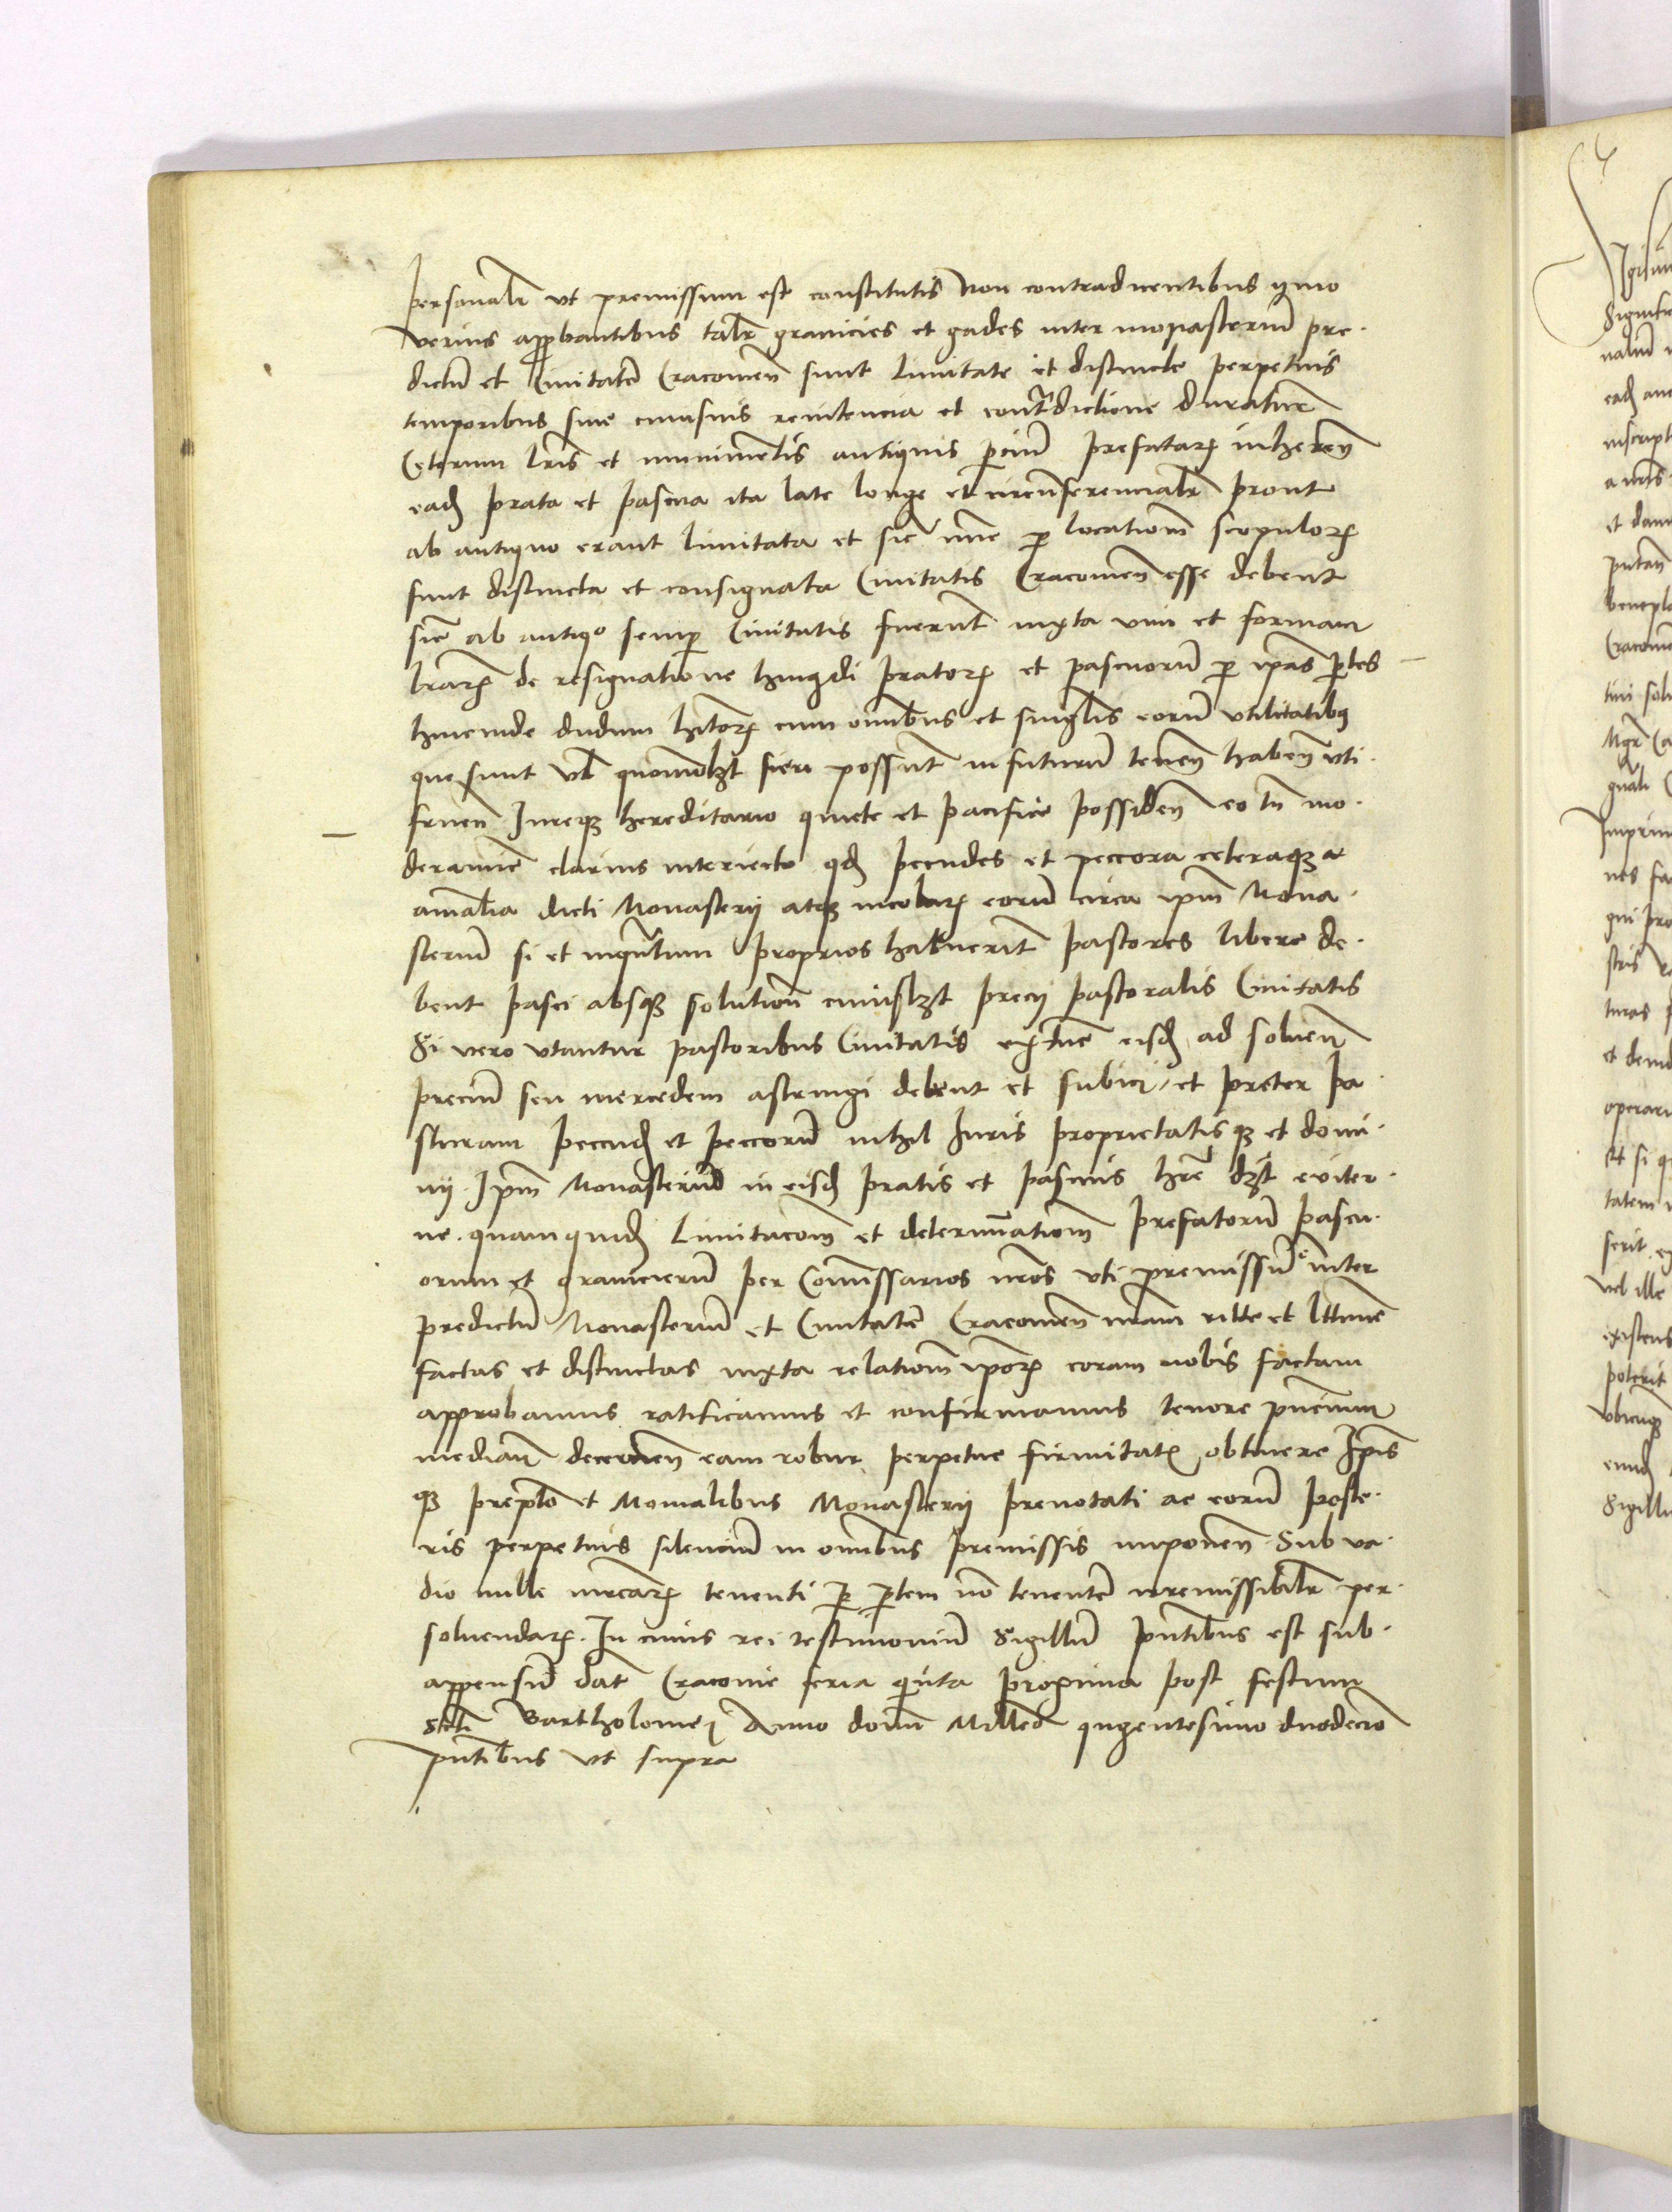 personalr vt premissum est constitutis non contradicentibus ymo
verius approbantibus talr granicies et gades inter monasterium pre-
dictum et Ciuitatem Cracouien sunt limitate et distincte perpetuis
temporibus sine cuiusuis renitencia et contradictione durature
Ceterum lris et munimentis antiquis parcium prefatarum inheren
eadem prata et pascua ita late longe et circumferencialr prout
ab antiquo erant limitata et sic nunc per locationem scopulorum
sunt distincta et consignata Ciuitatis Cracouien esse debent
sic ab antiquo semper Ciuitatis fuerunt iuxta vim et formam
lrarum de resignatione huiusmodi pratorum et pascuorum per ipas partes
hincinde dudum habitorum cum omnibus et singulis eorum vtilitatibus
que sunt vel quomodolibet fieri possunt infuturum tenen haben vti-
fruen Iureque hereditario quiete et pacifice possiden eo tamen mo-
deramine clarius interiecto quod pecudes et peccora ceteraque
animalia dicti Monasterij atque incolarum eorum circa ipm Mona-
sterium si et inquantum proprios habuerint pastores libere de-
bent pasci absque solutione cuiuslibet precij pastoralis Ciuitatis
Si vero vtantur pastoribus Ciuitatis extunc eisdem ad soluen
precium seu mercedem astringi debent et subici, et preter pa
sturam peccudum et peccorum nihil Iuris proprietatisque et domi-
nij Ipm Monasterium in eisdem pratis et pascuis habere debet euiter-
ne. quamquidem limitacionem et determinationem prefatorum pascu-
orum et granicierum per Comissarios nros vti premissum e inter
predictum Monasterium et Ciuitatem Cracouien nram ritte et legittime
factas et distinctas iuxta relationem iporum coram nobis factam
approbamus ratificamus et confirmamus tenore pncium
median decernen eam robur perpetue firmitatis obtinere Ipis
que preposito et Monialibus Monasterij prenotati ac eorum poste-
ris perpetuis silencium in omnibus premissis imponen Sub va-
dio mille mrcarum tenenti per partem non tenentem irremissibilr per-
soluendarum. In cuius rei testimonium Sigillum pntibus est sub-
appensum dat Cracouie feria quinta proxima post festum
Scti Bartholomei Anno domini Millesimo quingentesimo duodecimo
pntibus vt supra